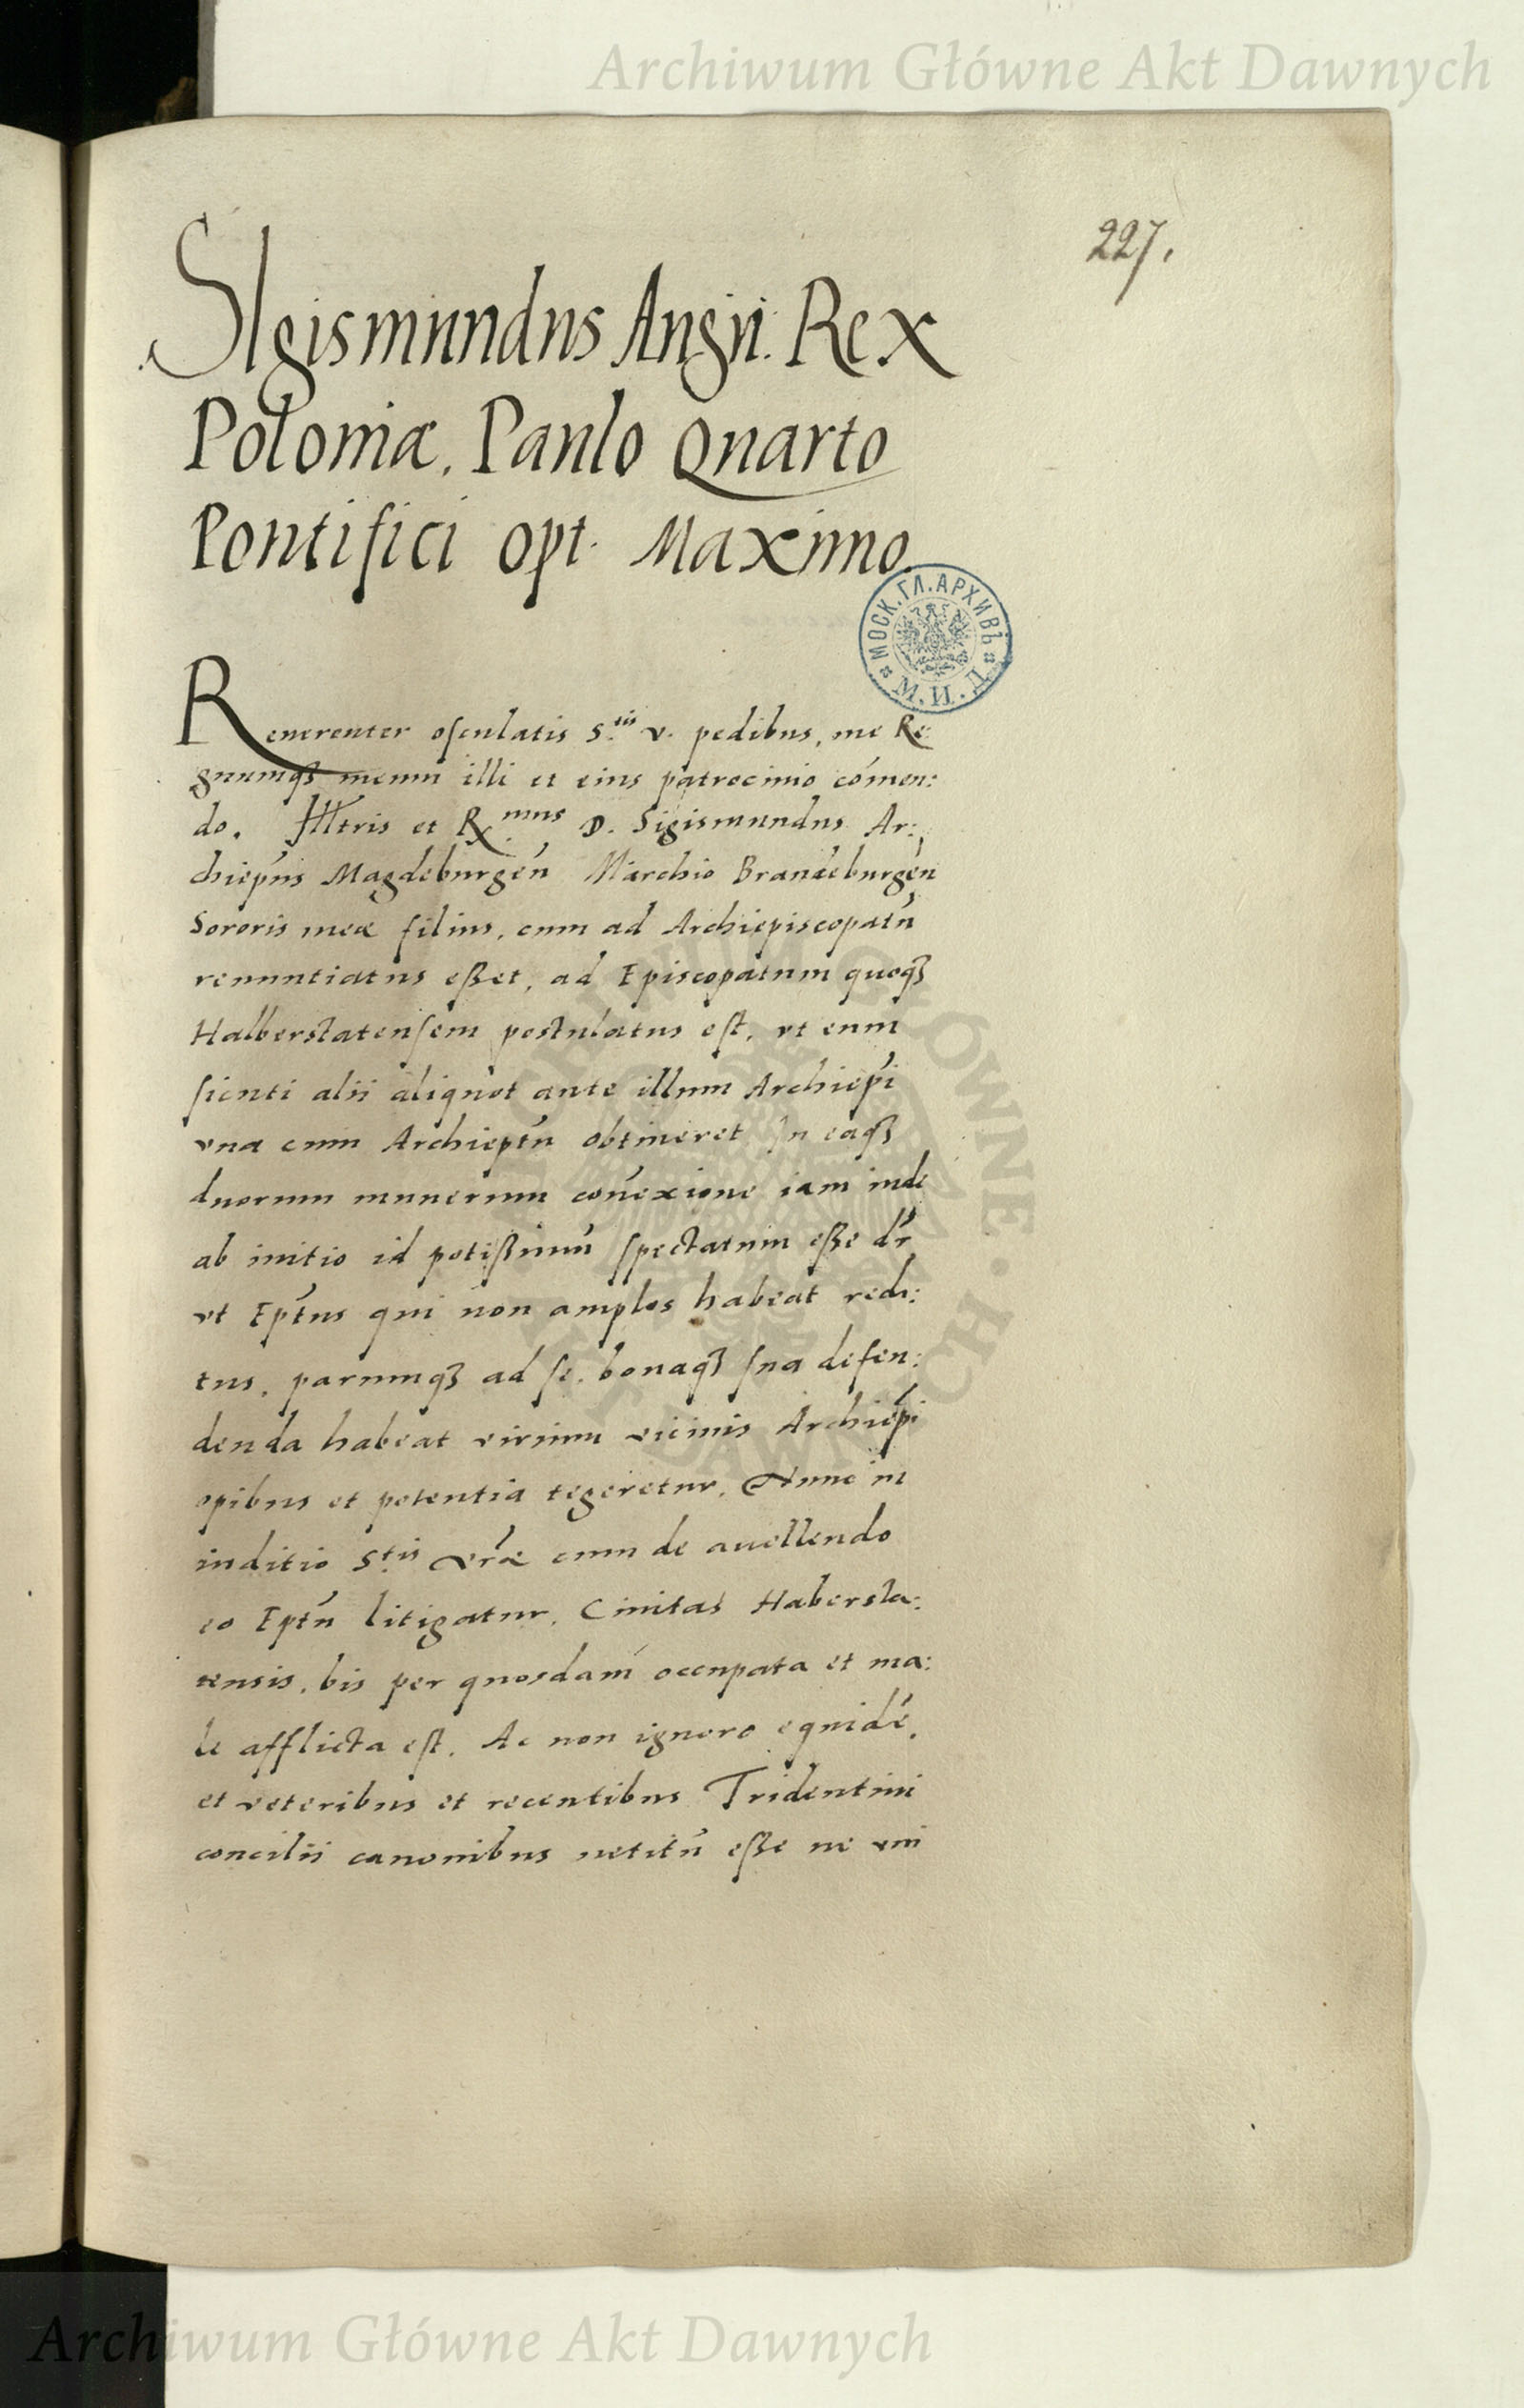 Archiwum Główne Akt Dawnych
227.
SIgismundus Augu. Rex
Poloniæ, Paulo Quarto
Pontifici opt. Maximo.
МОСК.ГЛ.АРХИВЪ
М.И.Д.
Reuerenter osculatis S.tis v. pedibus, me Re:
gnumqȝ meum illi et eius patrocinio cómen:
do. Illtris et Rx.mus D. Sigismundus Ar:
chiepũs Magdeburgeñ Marchio Brandeburgeñ
Sororis meæ filius, cum ad Archiepiscopatũ
renuntiatus eßet, ad Episcopatum quoqȝ
Halberstatensem postulatus est, vt eum
sicuti alii aliquot ante illum Archiepĩ
vna cum Archieptũ obtineret In eaqȝ
duorum munerum cońexione iam inde
ab initio id potißimũ spectatum eße dr̃
vt Epťus qui non amplos habeat redi:
tus, parumqȝ ad se, bonaqȝ sua defen:
denda habeat virium vicinis Archiepĩ
opibus et potentia tegeretur. Nunc in
inditio S.tis vr̃æ cum de auellendo
eo Eptũ litigatur, Ciuitas Habersta:
tensis, bis per quosdam occupata et ma:
le afflicta est. Ac non ignoro equidẽ,
et veteribus et recentibus Tridentini
concilii canonibus uetitũ eße ne vni
ARCHIWUM GŁÓWNE · AKT DAWNYCH ·
Archiwum Główne Akt Dawnych